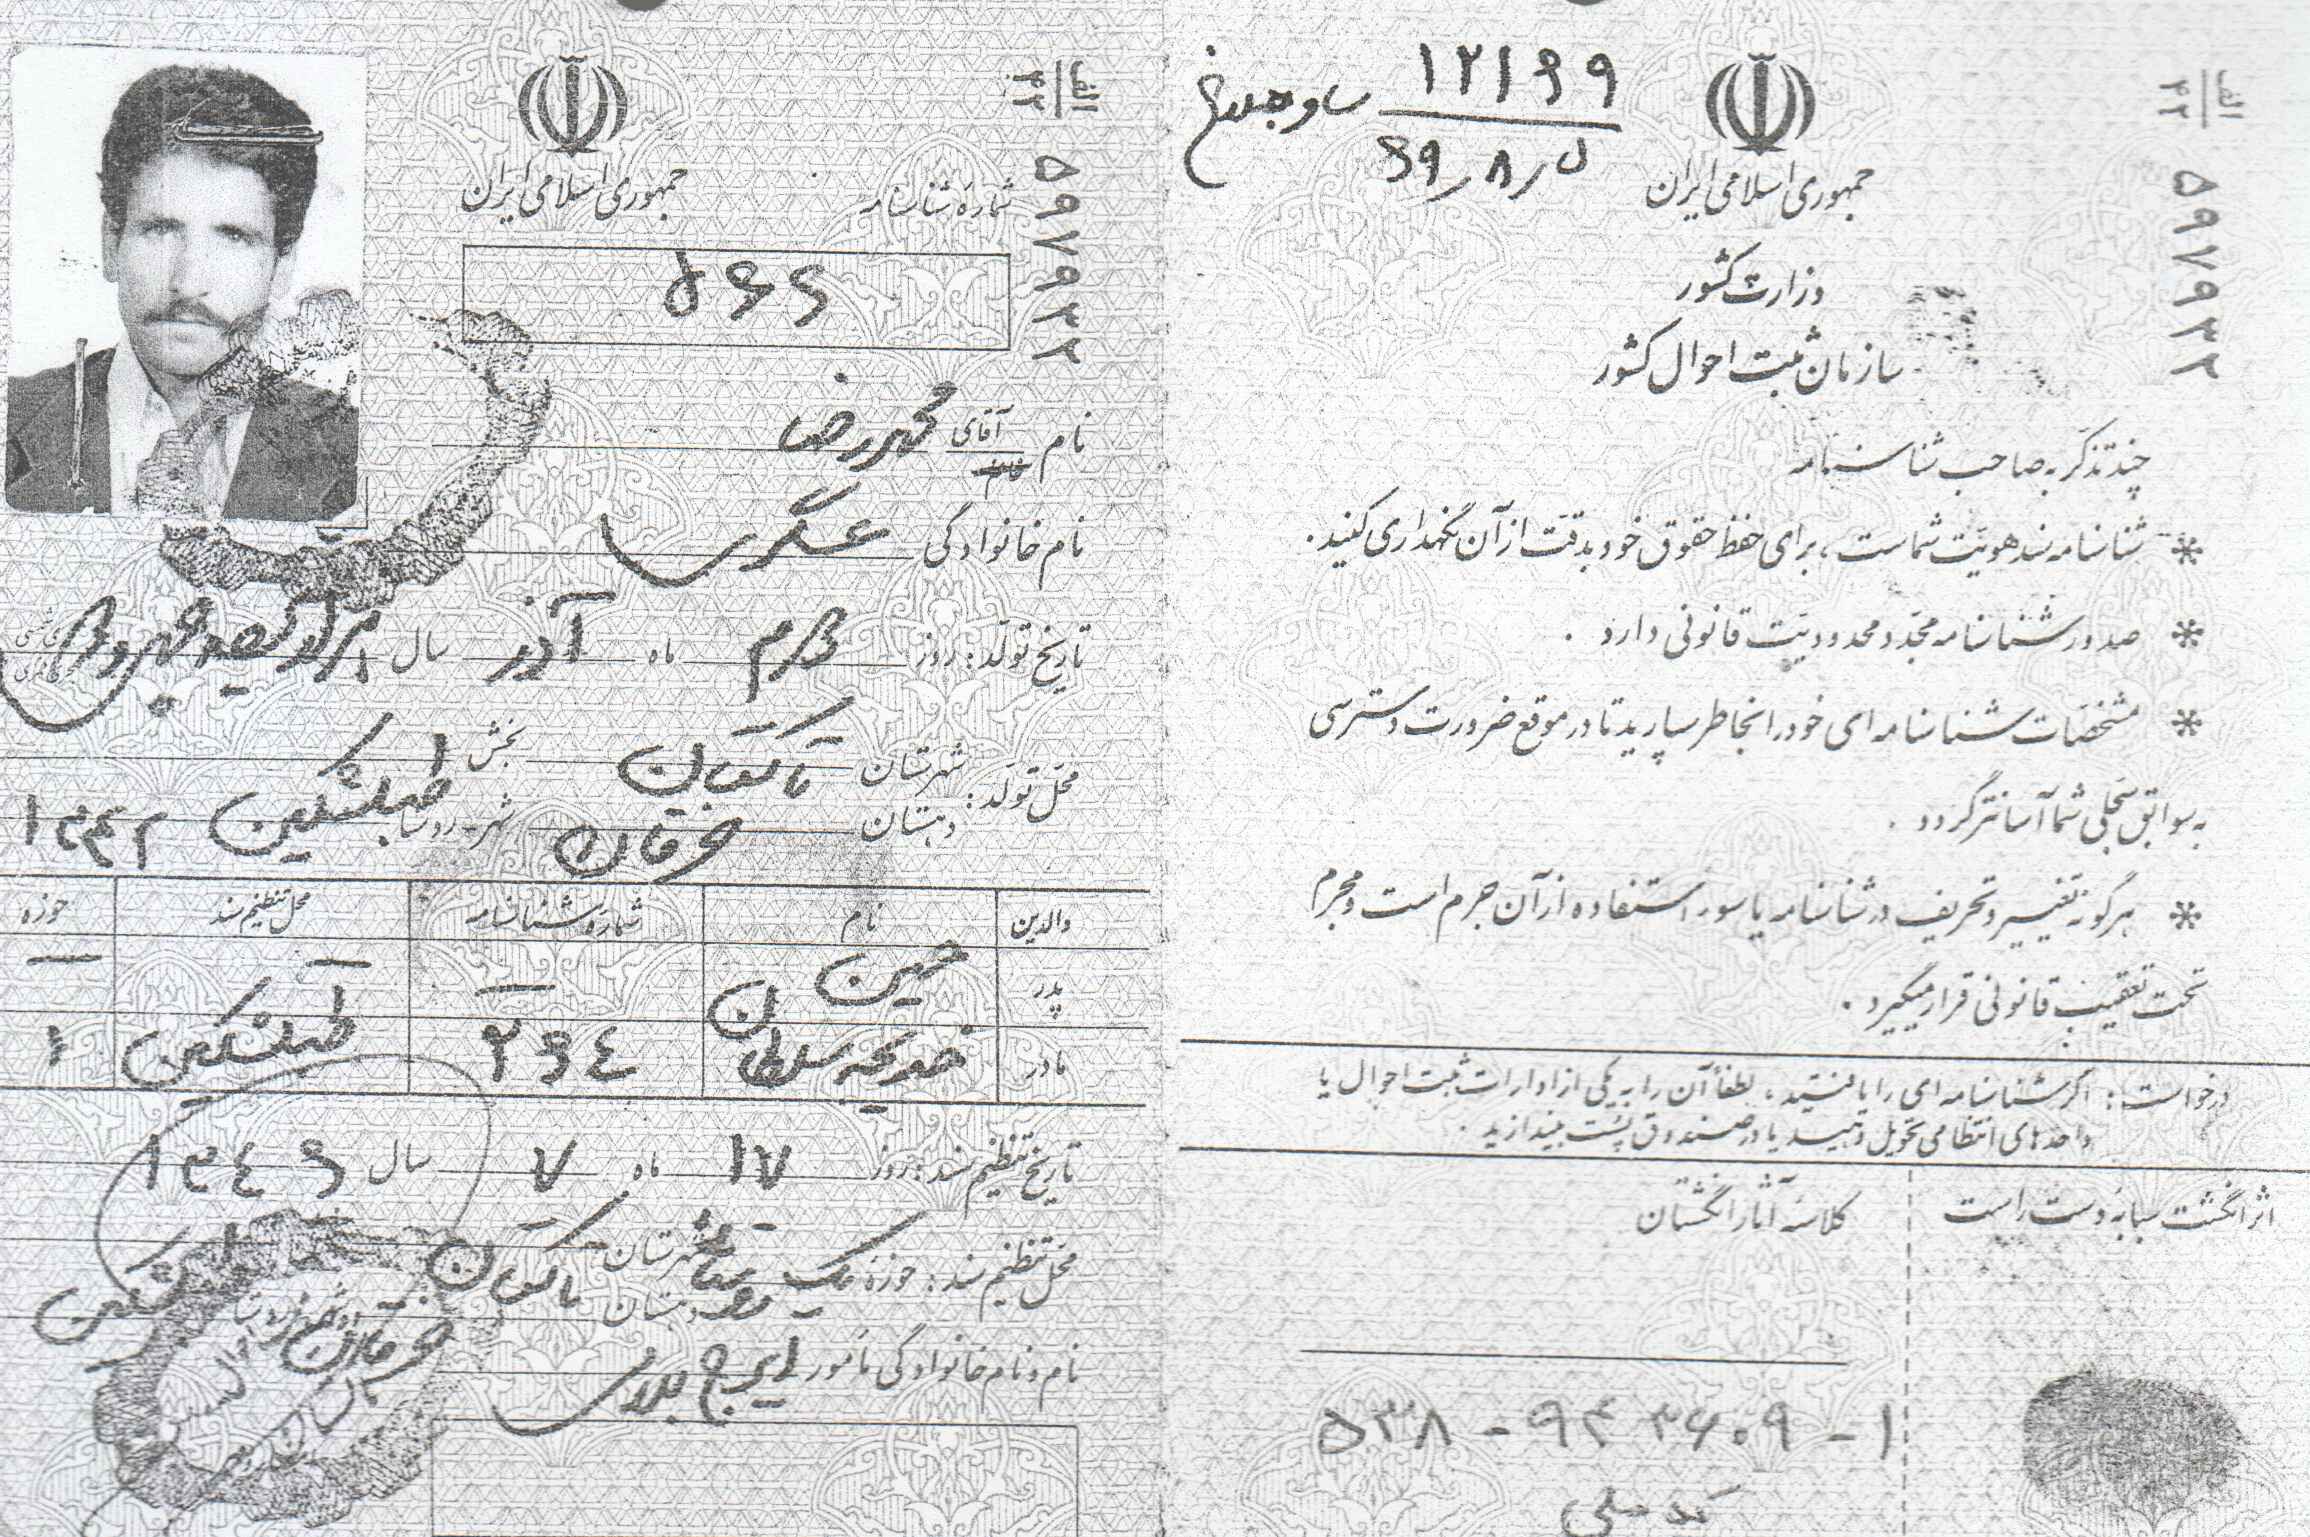 ۱۲۱۶۹ ساوجبلاغ
جمهوری اسلامی ایران
وزارت کشور
سازمان ثبت احوال کشور
الف
۴۲
۵۹۷۹۳۲
چند تذکر به صاحب شناسنامه
* شناسنامه سند هویت شماست، برای حفظ حقوق خود بدقت از آن نگهداری کنید.
* صدور شناسنامه مجدد محدودیت قانونی دارد.
* مشخصات شناسنامه ای خود را بخاطر بسپارید تا در موقع ضرورت دسترسی
به سوابق سجلی شما آسانتر گردد.
* هرگونه تغییر و تحریف در شناسنامه یا سوء استفاده از آن جرم است و مجرم
تحت تعقیب قانونی قرار میگیرد.
درخواست: اگر شناسنامه ای را یافتید، لطفاً آن را به یکی از ادارات ثبت احوال یا
واحدهای انتظامی تحویل دهید یا در صندوق پست بیندازید.
اثر انگشت سبابه دست راست
کلاسه آثار انگشتان
کد ملی
الف
۴۲
۵۹۷۹۳۲
جمهوری اسلامی ایران
شماره شناسنامه
نام آقای محمدرضا
نام خانوادگی عسگری
تاریخ تولد: روز ماه آذر سال
محل تولد: شهرستان تاکستان بخش
دهستان خرقان شهر-روستا ۱۳۴۲
والدین نام شماره شناسنامه محل تنظیم سند حوزه
پدر حسین — — —
مادر خدیجه سلطان ۲۶۴ ۱
تاریخ تنظیم سند: روز ۱۷ ماه ۷ سال ۱۳۴۶
محل تنظیم سند: حوزه یک شهرستان تاکستان
دهستان خرقان
نام و نام خانوادگی مأمور ایرج